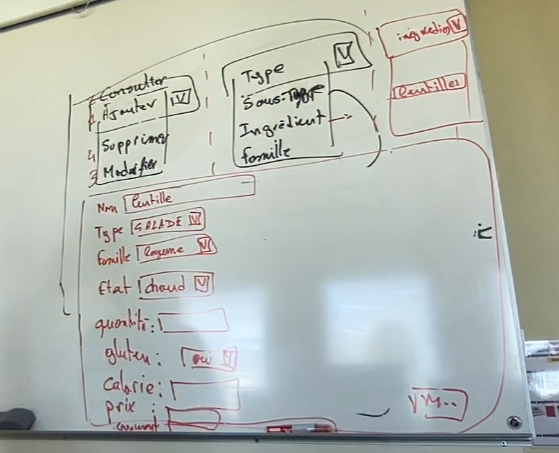 Consulter
1 Ajouter
4 Supprimer
3 Modifier
Type
Sous-Type
Ingrédient
famille
ingrédient
lentilles
Nom lentille
Type SALADE
famille légume
Etat chaud
quantité:
gluten: oui
calorie:
prix :